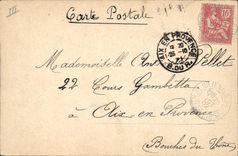 Carte Postale
AIX EN PROVENCE
B. DU R.
10
Mademoiselle Pellet
22 Cours Gambetta
à
Aix en Provence
Bouches du Rhône